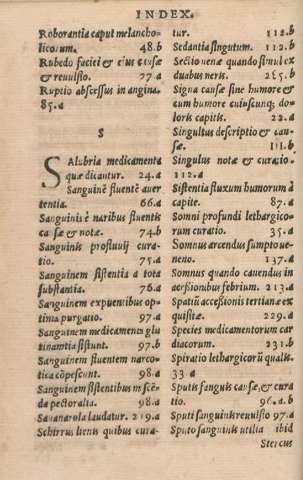 INDEX.
Roborantia caput melancho-
licorum. 48.b
Rubedo faciei & eius causæ
& reuulsio. 27.a
Ruptio abscessus in angina.
85.a
S
SAlubria medicamenta
quæ dicantur. 24.a
Sanguinẽ fluentẽ auer
tentia. 66.a
Sanguinis è naribus fluentis
causæ & notæ. 74.b
Sanguinis profluuij cura-
tio. 75.a
Sanguinem sistentia a tota
substantia. 76.a
Sanguinem expuentibus op-
tima purgatio. 97.a
Sanguinem medicamenta glu
tinantia sistunt. 97.b
Sanguinem fluentem narco-
tica cõpescunt. 98.a
Sanguinem sistentibus miscẽ-
da pectoralia. 98.a
Sauanarola laudatur. 219.a
Schirrus lienis quibus cura-
tur. 112.b
Sedantia singultum. 112.b
Sectio uenæ quando simul ex
duabus neris. 255.b
Signa causæ sine humore &
cum humore cuiuscunq; do-
loris capitis. 22.a
Singultus descriptio & cau-
sæ. 111.b
Singulus notæ & curatio.
112.a
Sistentia fluxum humorum à
capite. 87.a
Somni profundi lethargico-
rum curatio. 35.a
Somnus arcendus sumpto ue-
neno. 137.a
Somnus quando cauendus in
accßionibus febrium. 213.a
Spatiũ acceßionis tertianæ ex
quisitæ. 229.a
Species medicamentorum car
diacorum. 231.b
Spiratio lethargicorũ qualis.
33 a
Sputi sanguis causæ, & cura
tio. 96.a.b
Sputi sanguinis reuulsio 97.a
Sputo sanguinis utilia ibid
Stercus